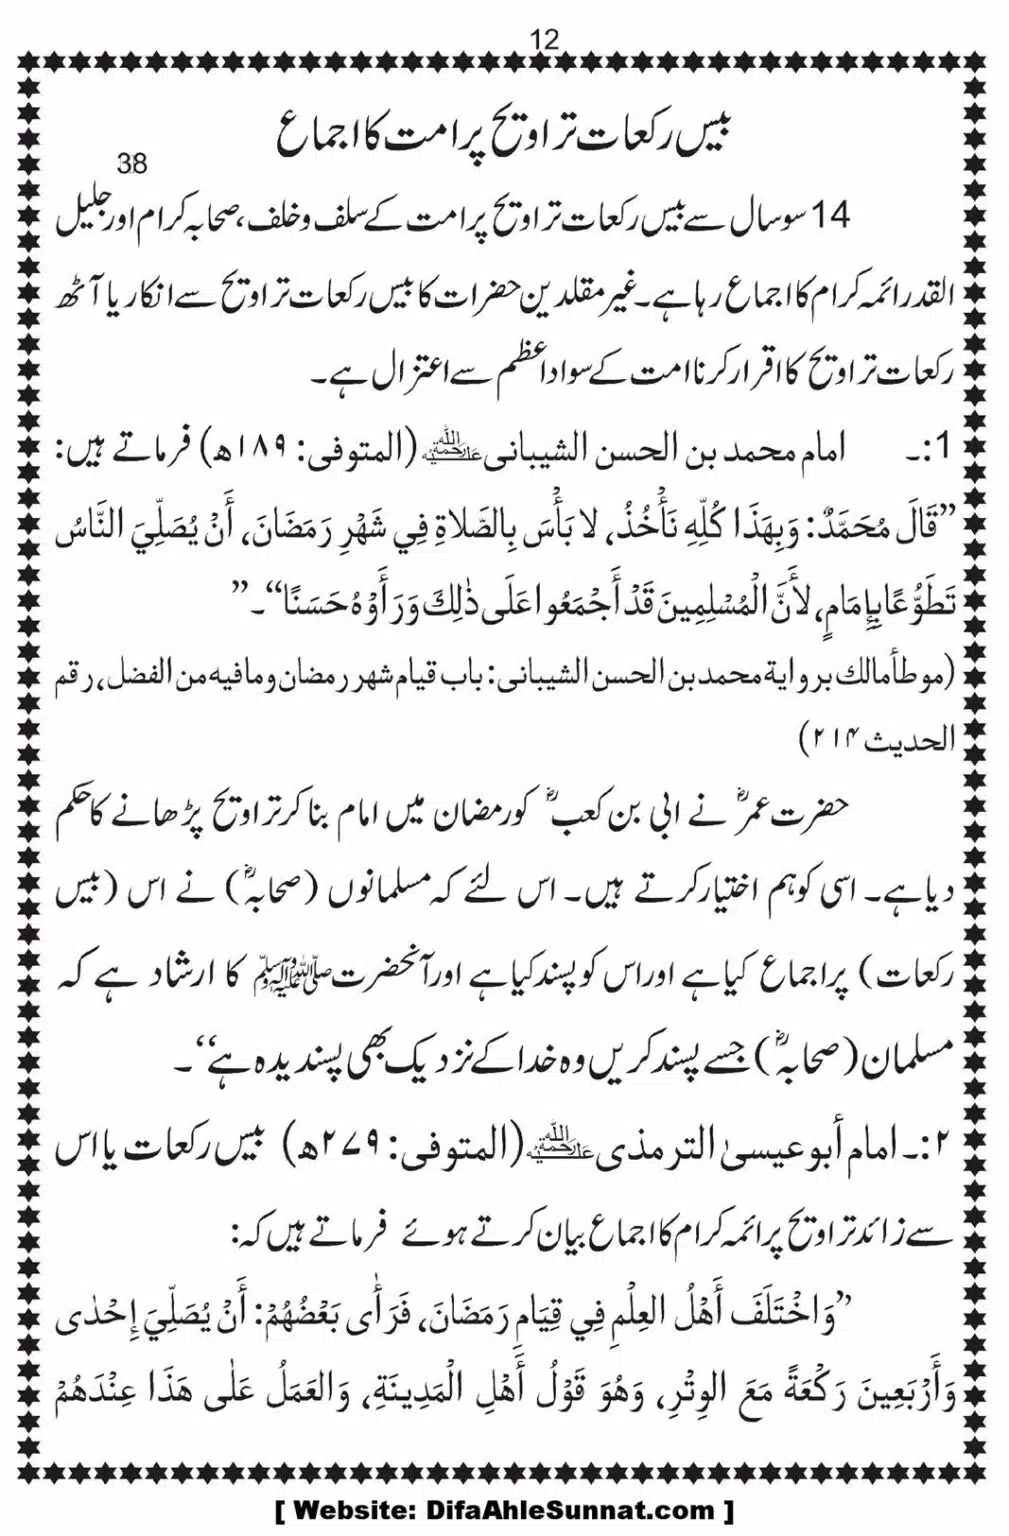 12
بیس رکعات تراویح پر امت کا اجماع
38
14 سو سال سے بیس رکعات تراویح پر امت کے سلف و خلف، صحابہ کرام اور جلیل
القدر ائمہ کرام کا اجماع رہا ہے۔ غیر مقلدین حضرات کا بیس رکعات تراویح سے انکار یا آٹھ
رکعات تراویح کا اقرار کرنا امت کے سواد اعظم سے اعتزال ہے۔
1:۔ امام محمد بن الحسن الشیبانی رحمۃ اللہ علیہ (المتوفی: ۱۸۹ھ) فرماتے ہیں:
”قَالَ مُحَمَّدٌ: وَبِهَذَا كُلِّهِ نَأْخُذُ، لا بَأْسَ بِالصَّلاةِ فِي شَهْرِ رَمَضَانَ، أَنْ يُصَلِّيَ النَّاسُ
تَطَوُّعًا بِإِمَامٍ، لأَنَّ الْمُسْلِمِينَ قَدْ أَجْمَعُوا عَلَى ذٰلِكَ وَرَأَوْهُ حَسَنًا“۔ ”
(موطأ مالك برواية محمد بن الحسن الشيبانی: باب قيام شهر رمضان وما فيه من الفضل، رقم
الحديث ۲۱۴)
حضرت عمرؓ نے ابی بن کعبؓ کو رمضان میں امام بنا کر تراویح پڑھانے کا حکم
دیا ہے۔ اسی کو ہم اختیار کرتے ہیں۔ اس لئے کہ مسلمانوں (صحابہؓ) نے اس (بیس
رکعات) پر اجماع کیا ہے اور اس کو پسند کیا ہے اور آنحضرت ﷺ کا ارشاد ہے کہ
مسلمان (صحابہؓ) جسے پسند کریں وہ خدا کے نزدیک بھی پسندیدہ ہے“۔
۲:۔ امام أبو عیسیٰ الترمذی رحمۃ اللہ علیہ (المتوفی: ۲۷۹ھ) بیس رکعات یا اس
سے زائد تراویح پر ائمہ کرام کا اجماع بیان کرتے ہوئے فرماتے ہیں کہ:
”وَاخْتَلَفَ أَهْلُ العِلْمِ فِي قِيَامِ رَمَضَانَ، فَرَأَى بَعْضُهُمْ: أَنْ يُصَلِّيَ إِحْدٰى
وَأَرْبَعِينَ رَكْعَةً مَعَ الوِتْرِ، وَهُوَ قَوْلُ أَهْلِ الْمَدِينَةِ، وَالعَمَلُ عَلٰى هَذَا عِنْدَهُمْ
[ Website: DifaAhleSunnat.com ]